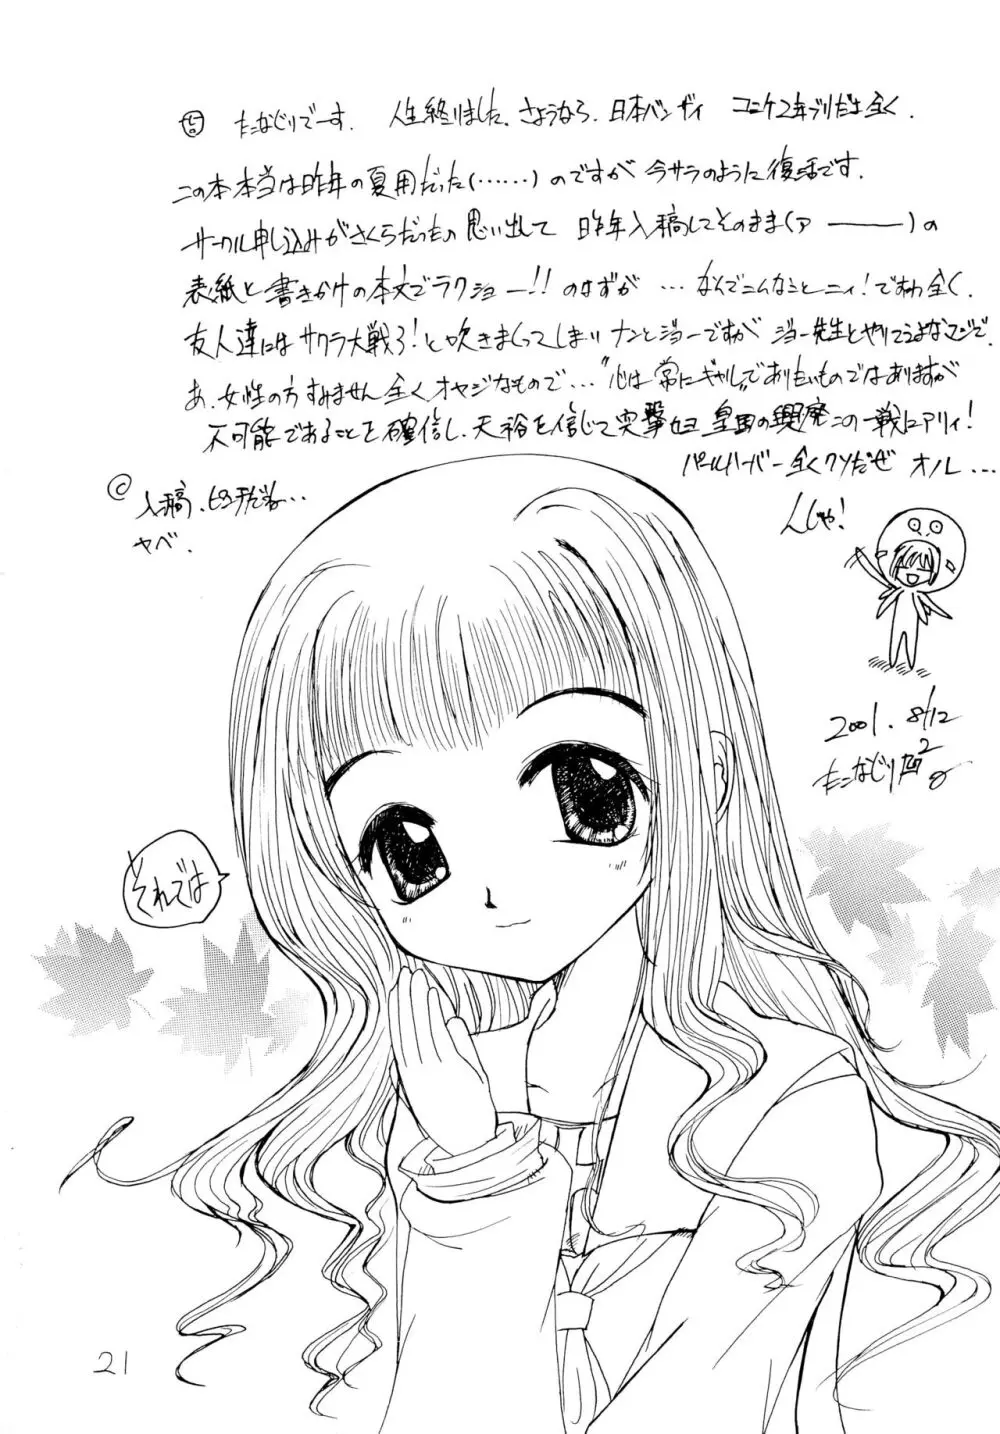 たなじりでーす。 人生終りました、さようなら、日本バンザイ コミケ2年ブリだよ全く、
この本本当は昨年の夏用だった(……)のですが今サラのように復活です。
サークル申し込みがさくらだったの思い出して 昨年入稿してそのまま(ァ ———)の
表紙と書きかけの本文でラクショー!! のはずが … なんでこんなことニィ!ですわ全く、
友人達にはサクラ大戦ろ!と吹きまくってしまい ナントジョーですが ジョー先生と
あ、女性の方すみません全くオヤジなもので…"心は常にギャル"でありたいものではありますが
不可能であることを確信し、天裕を信じて突撃せヨ 皇国の興廃この一戦にアリィ!
パールハーバー全くクソだぜ オル…
んじゃ!
© 入稿、ピンチだね…
ヤベ、
2001. 8/12
たこなじり
それでは
21